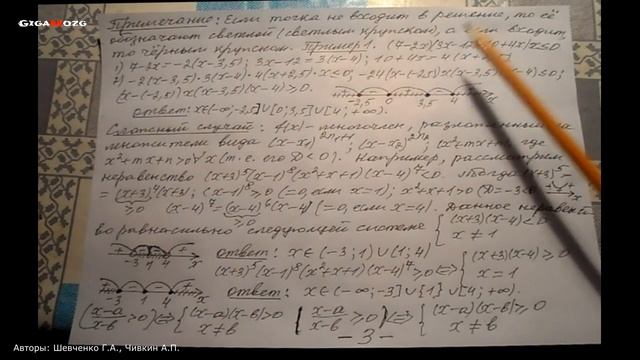 GIGAMOZG
Примечание: Если точка не входит в решение, то её
обозначают светлой (светлым кружком), а если входит,
то чёрным кружком. Пример 1. (7-2x)(3x-12)(10+4x)x≤0
1) 7-2x=-2(x-3,5); 3x-12=3(x-4); 10+4x=4(x+2,5)
2) -2(x-3,5)·3(x-4)·4(x+2,5)·x≤0; -24(x-(-2,5))x(x-3,5)(x-4)≤0;
(x-(-2,5))x(x-3,5)(x-4)≥0.
-2,5 0 3,5 4 x
ответ: x∈(-∞;-2,5]∪[0;3,5]∪[4;+∞).
Сложный случай: f(x) - многочлен, разложенный на
множители вида (x-x₁)²ⁿ⁺¹; (x-x₂)²ⁿ; (x²+mx+n), где
x²+mx+n>0 ∀x (т.е. его D<0). Например, рассмотрим
неравенство (x+3)⁵(x-1)⁸(x²+x+1)(x-4)⁷<0. Тогда (x+3)⁵=
=(x+3)⁴(x+3); (x-1)⁸≥0 (=0, если x=1); x²+x+1>0 (D=-3<0)
≥0 (x-4)⁷=(x-4)⁶(x-4) (=0, если x=4). Данное неравен
≥0
во равносильно следующей системе {(x+3)(x-4)<0
x≠1
-3 1 4 x
ответ: x∈(-3;1)∪(1;4)
(x+3)⁵(x-1)⁸(x²+x+1)(x-4)⁷≥0 ⇔ {(x+3)(x-4)≥0
x=1
-3 1 4 x
ответ: x∈(-∞;-3]∪{1}∪[4;+∞).
(x-a/x-в >0) ⇔ {(x-a)(x-в)>0
x≠в
(x-a/x-в ≥0) ⇔ {(x-a)(x-в)≥0
x≠в
-3-
Авторы: Шевченко Г.А., Чивкин А.П.